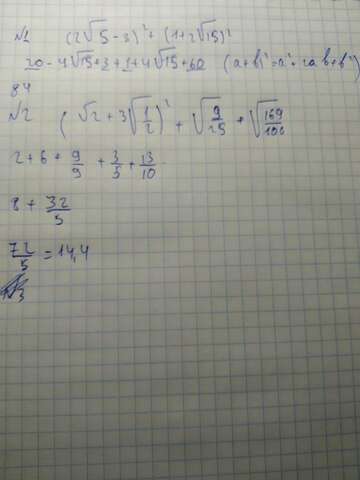 №1 (2√5 - 3)² + (1+2√15)²
20 - 4√15 + 3 + 1 + 4√15 + 60 (a+b)² = a² + 2ab + b²)
84
№2 (√2 + 3√1/2)² + √9/25 + √169/100
2 + 6 + 9/9 + 3/5 + 13/10
8 + 32/5
72/5 = 14,4
№3